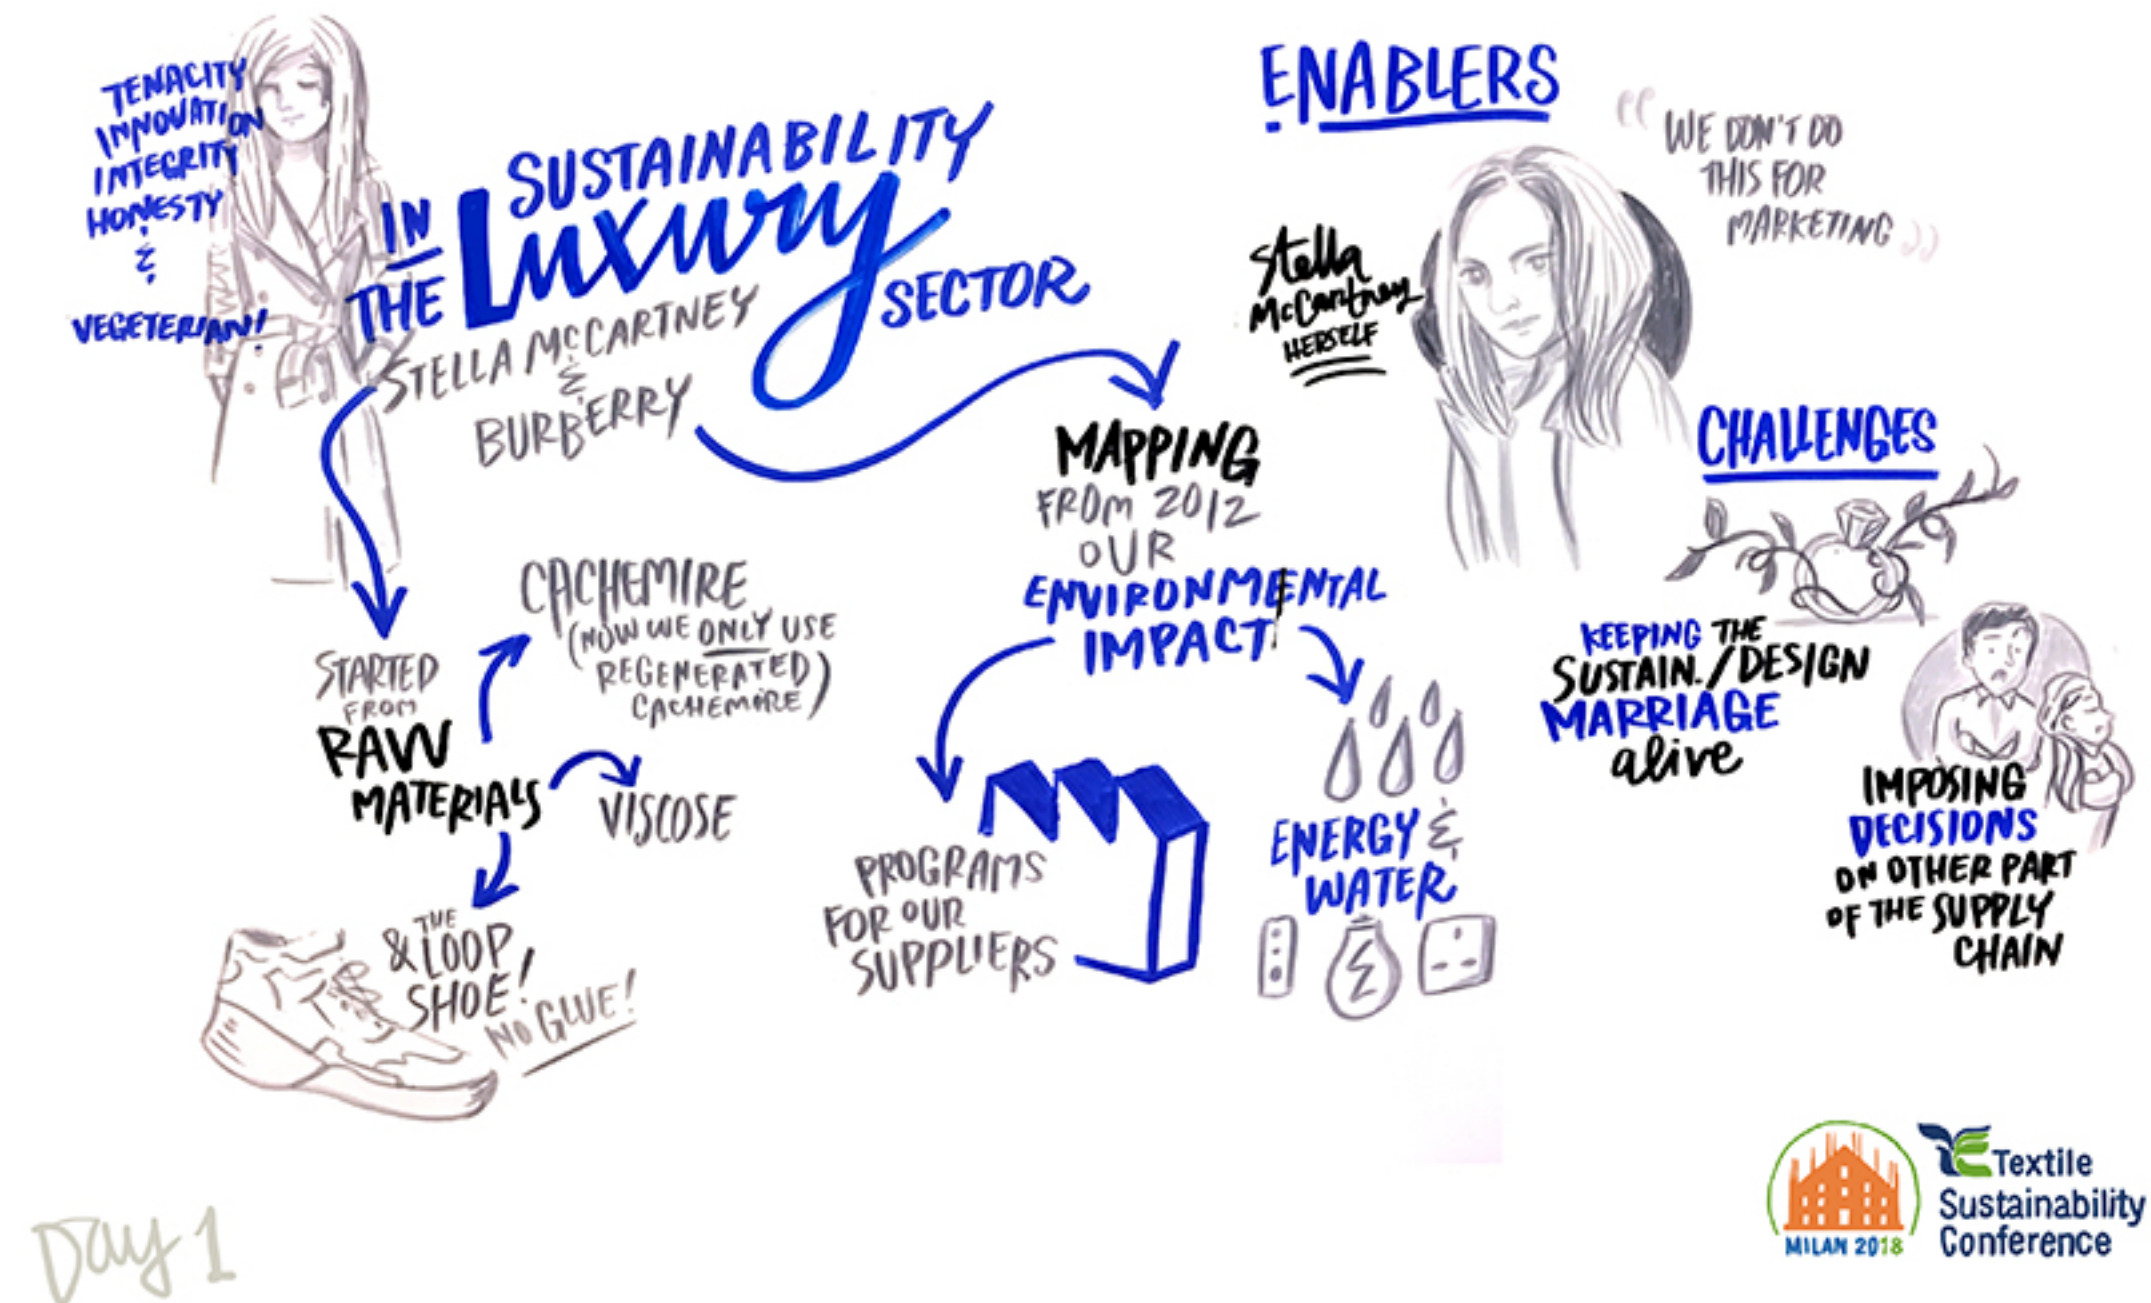 TENACITY
INNOVATION
INTEGRITY
HONESTY
&
VEGETERIAN!
SUSTAINABILITY
IN
THE Luxury
SECTOR
STELLA McCARTNEY
&
BURBERRY
STARTED
FROM
RAW
MATERIALS
CACHEMIRE
(NOW WE ONLY USE
REGENERATED)
CACHEMIRE)
VISCOSE
THE
& LOOP
SHOE!
NO GLUE!
MAPPING
FROM 2012
OUR
ENVIRONMENTAL
IMPACT
PROGRAMS
FOR OUR
SUPPLIERS
ENERGY &
WATER
ENABLERS
Stella
McCartney
HERSELF
"WE DON'T DO
THIS FOR
MARKETING"
CHALLENGES
KEEPING THE
SUSTAIN./DESIGN
MARRIAGE
alive
IMPOSING
DECISIONS
ON OTHER PART
OF THE SUPPLY
CHAIN
Day 1
MILAN 2018
Textile
Sustainability
Conference